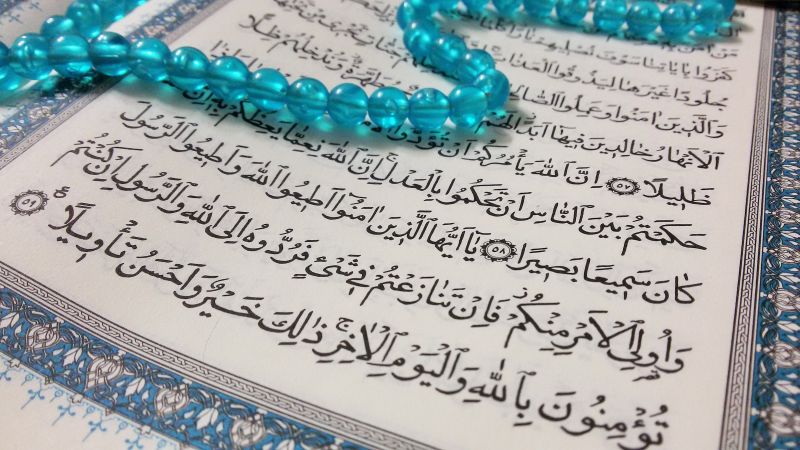 كَفَرُوا بِاٰيَاتِنَا سَوْفَ نُصْلِيهِمْ نَارًا
جُلُودًا غَيْرَهَا لِيَذُوقُوا الْعَذَابَ
وَالَّذِينَ اٰمَنُوا وَعَمِلُوا الصَّالِحَاتِ
الْاَنْهَارُ خَالِدِينَ فِيهَا اَبَدًا لَهُمْ وَنُدْخِلُهُمْ ظِلًّا
ظَلِيلًا ﴿٥٧﴾ اِنَّ اللّٰهَ يَأْمُرُكُمْ اَنْ تُؤَدُّوا
حَكَمْتُمْ بَيْنَ النَّاسِ اَنْ تَحْكُمُوا بِالْعَدْلِۚ اِنَّ اللّٰهَ نِعِمَّا يَعِظُكُمْ بِهِۚ اِنَّ
كَانَ سَمِيعًا بَصِيرًا ﴿٥٨﴾ يَٓا اَيُّهَا الَّذِينَ اٰمَنُٓوا اَطِيعُوا اللّٰهَ وَاَطِيعُوا الرَّسُولَ
وَاُو۬لِي الْاَمْرِ مِنْكُمْۚ فَاِنْ تَنَازَعْتُمْ فِي شَيْءٍ فَرُدُّوهُ اِلَى اللّٰهِ وَالرَّسُولِ اِنْ كُنْتُمْ
تُؤْمِنُونَ بِاللّٰهِ وَالْيَوْمِ الْاٰخِرِۚ ذٰلِكَ خَيْرٌ وَاَحْسَنُ تَأْوِيلًا ﴿٥٩﴾